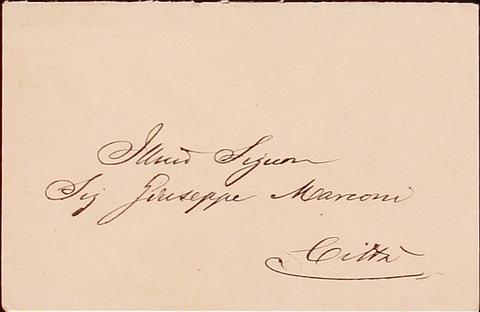 Illmo Signor
Sig Giuseppe Marconi
Città